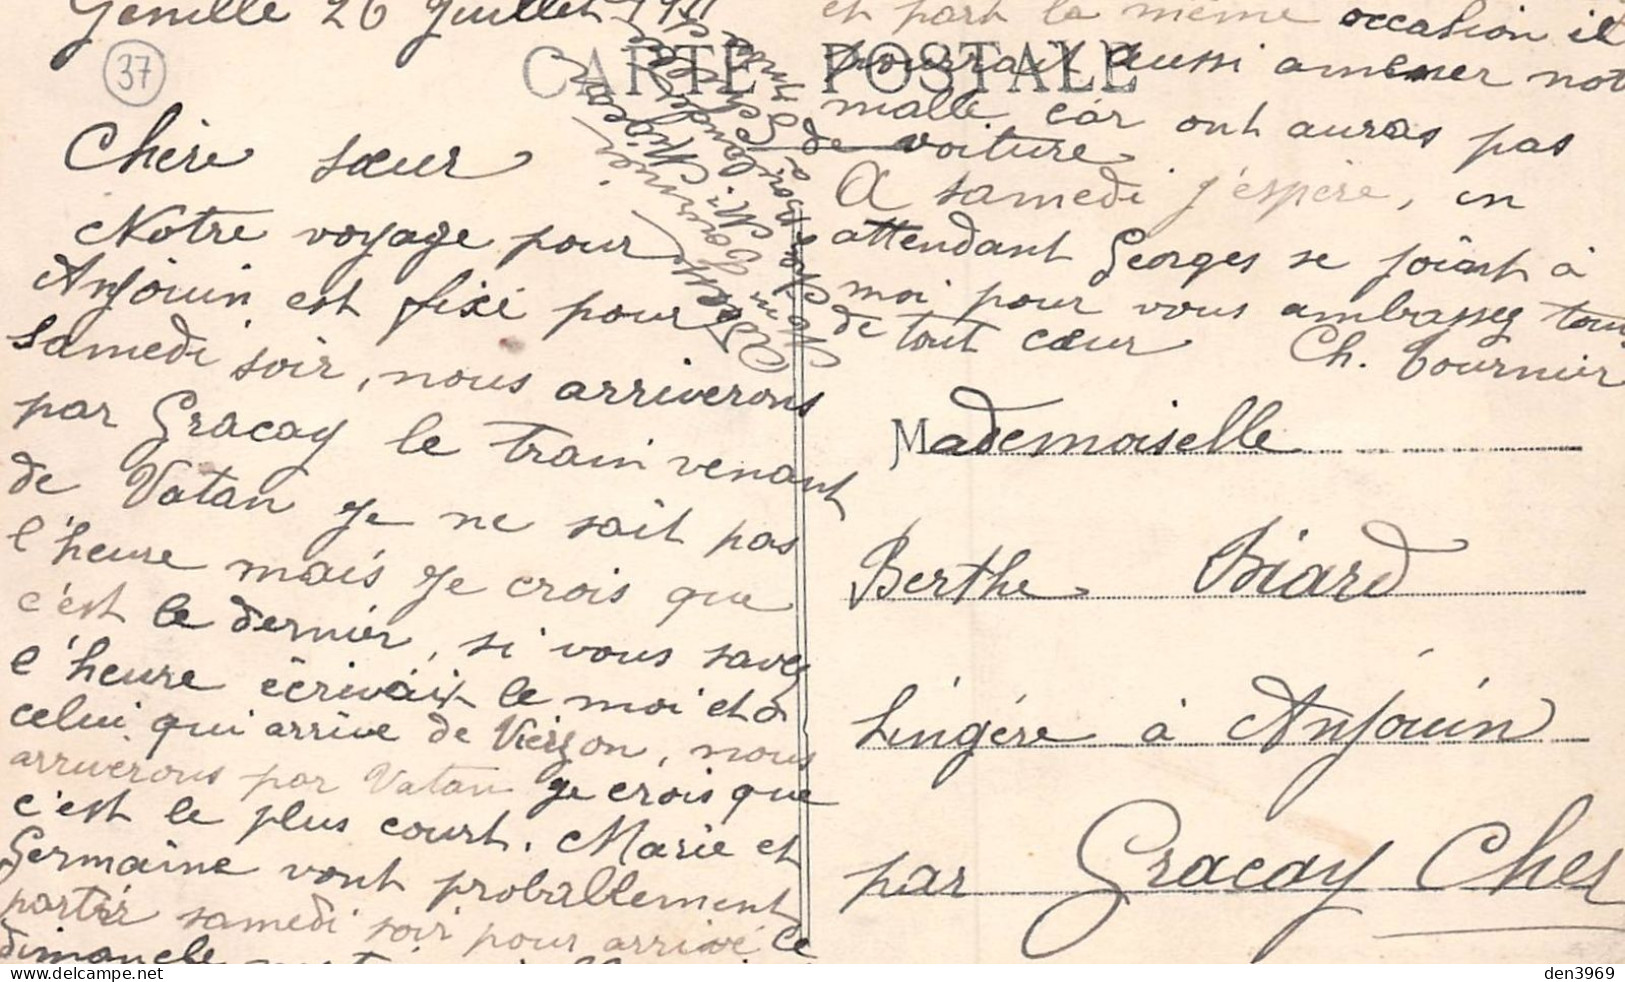 Genillé 26 Juillet 1911
37
CARTE POSTALE
Chère sœur
Notre voyage pour
Anjouin est fixé pour
samedi soir, nous arriverons
par Graçay le train venant
de Vatan je ne sait pas
l'heure mais je crois que
c'est le dernier, si vous savez
l'heure écrivait le moi et à
celui qui arrive de Vierzon, nous
arriverons par Vatan je crois que
c'est le plus court. Marie et
Germaine vont proballement
partir samedi soir pour arrivé le
dimanche
et part la même occasion il
pourrait aussi amener not
malle car ont auras pas
de voiture
A samedi j'espère, en
attendant Georges se joint à
moi pour vous ambrassez tous
de tout cœur
Ch. Tournier
Mademoiselle
Berthe Biard
Lingère à Anjouin
par Graçay Cher
den3969